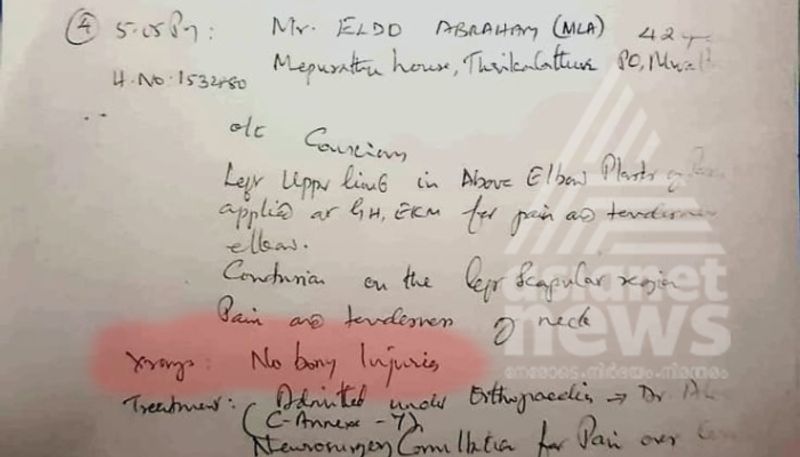 ④ 5.05 Pm: Mr. ELDO ABRAHAM (MLA) 42
H.No: 1532480 Mepurathu house, Thrikalathur PO,
o/e Conscious
Left Upper limb in Above Elbow Plaster
applied at GH, EKM for pain and tenderness
elbow.
Contusion on the left Scapular region
Pain and tenderness of neck
Xrays: No bony Injuries
Treatment: Admitted under Orthopaedics → Dr
(C-Annexe - 7)
Neurosurgery Consultation for Pain over
asianet
news
നേരോടെ. നിർഭയം. നിരന്തരം.